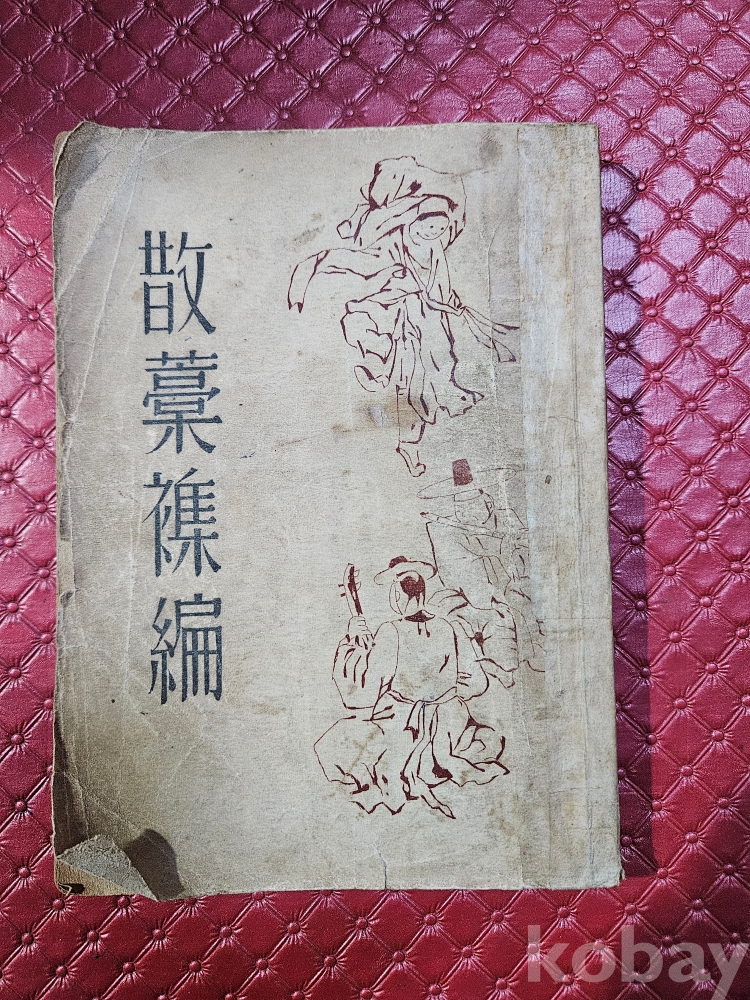 散藁襍編
kobay